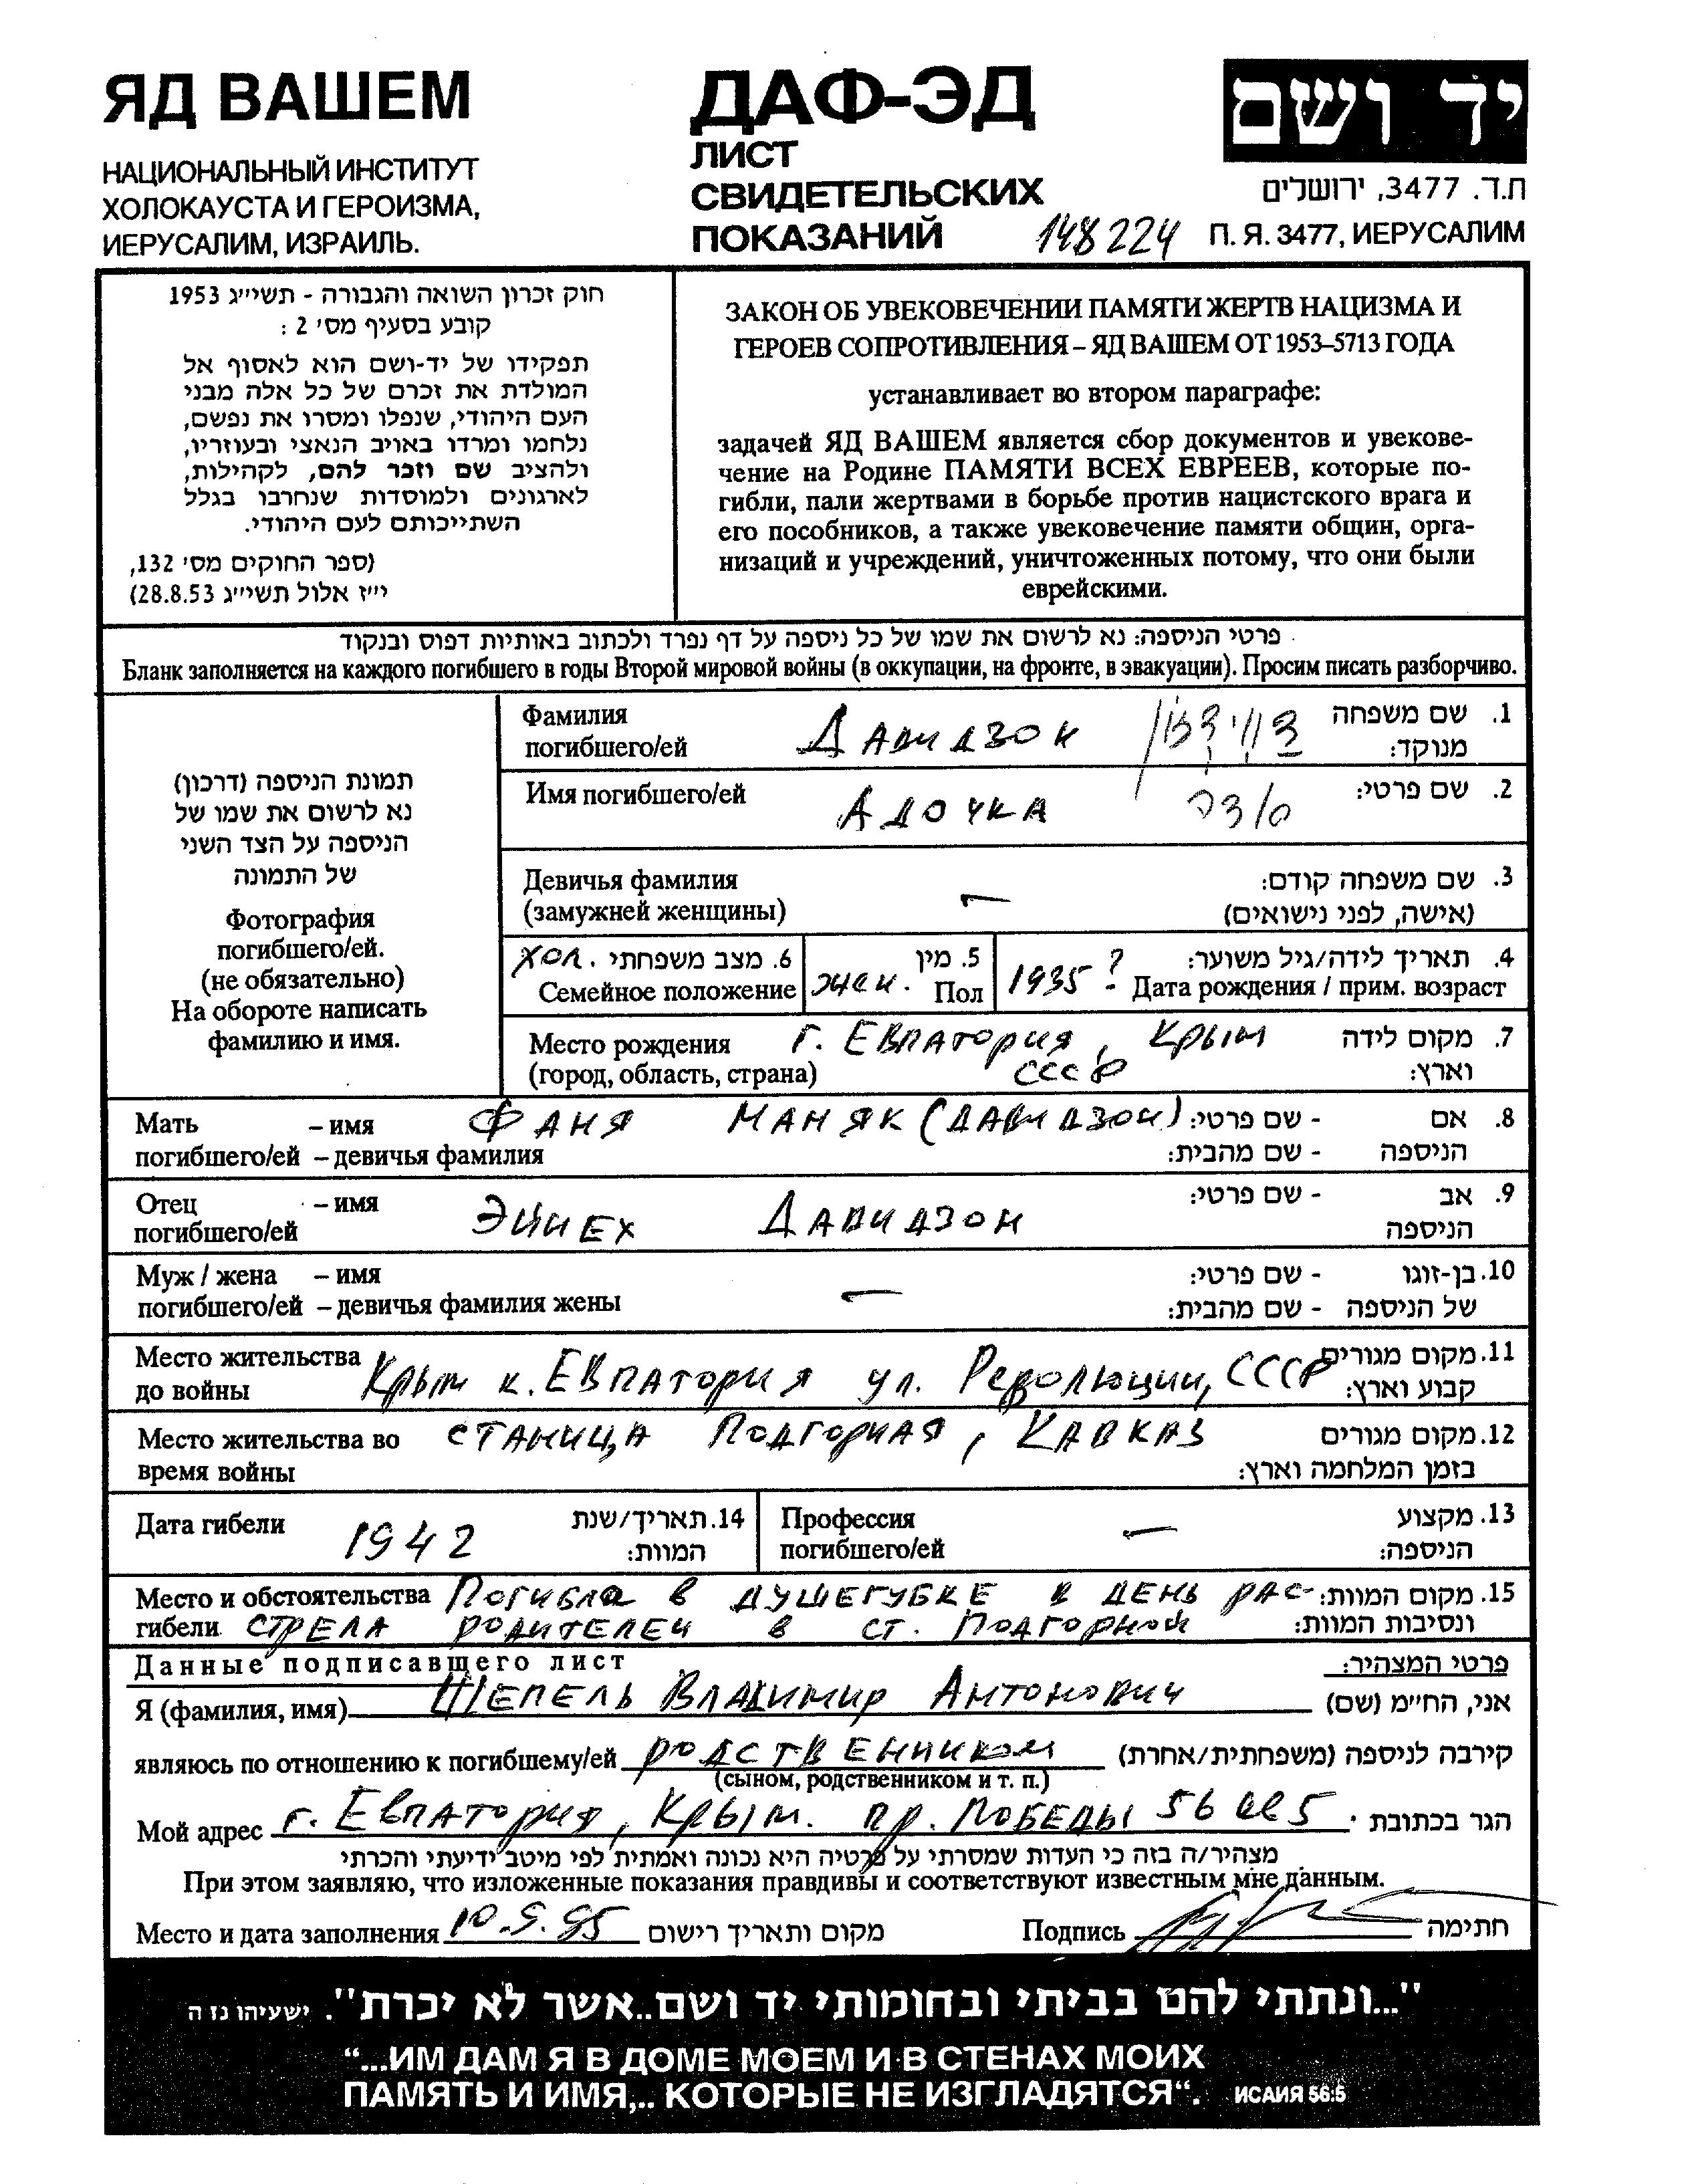 ЯД ВАШЕМ
НАЦИОНАЛЬНЫЙ ИНСТИТУТ
ХОЛОКАУСТА И ГЕРОИЗМА,
ИЕРУСАЛИМ, ИЗРАИЛЬ.
ДАФ-ЭД
ЛИСТ
СВИДЕТЕЛЬСКИХ
ПОКАЗАНИЙ 148224
יד ושם
ת.ד. 3477, ירושלים
П. Я. 3477, ИЕРУСАЛИМ
חוק זכרון השואה והגבורה - תשי״ג 1953
קובע בסעיף מס׳ 2 :
תפקידו של יד-ושם הוא לאסוף אל
המולדת את זכרם של כל אלה מבני
העם היהודי, שנפלו ומסרו את נפשם,
נלחמו ומרדו באויב הנאצי ובעוזריו,
ולהציב שם וזכר להם, לקהילות,
לארגונים ולמוסדות שנחרבו בגלל
השתייכותם לעם היהודי.
(ספר החוקים מס׳ 132,
י״ז אלול תשי״ג 28.8.53)
ЗАКОН ОБ УВЕКОВЕЧЕНИИ ПАМЯТИ ЖЕРТВ НАЦИЗМА И
ГЕРОЕВ СОПРОТИВЛЕНИЯ – ЯД ВАШЕМ ОТ 1953–5713 ГОДА
устанавливает во втором параграфе:
задачей ЯД ВАШЕМ является сбор документов и увекове-
чение на Родине ПАМЯТИ ВСЕХ ЕВРЕЕВ, которые по-
гибли, пали жертвами в борьбе против нацистского врага и
его пособников, а также увековечение памяти общин, орга-
низаций и учреждений, уничтоженных потому, что они были
еврейскими.
פרטי הניספה: נא לרשום את שמו של כל ניספה על דף נפרד ולכתוב באותיות דפוס ובנקוד
Бланк заполняется на каждого погибшего в годы Второй мировой войны (в оккупации, на фронте, в эвакуации). Просим писать разборчиво.
תמונת הניספה (דרכון)
נא לרשום את שמו של
הניספה על הצד השני
של התמונה
Фотография
погибшего/ей.
(не обязательно)
На обороте написать
фамилию и имя.
Фамилия Давидзон דוידזון 1. שם משפחה
погибшего/ей מנוקד:
Имя погибшего/ей Адочка 2. שם פרטי:
Девичья фамилия — 3. שם משפחה קודם:
(замужней женщины) (אישה, לפני נישואים)
хол. 6. מצב משפחתי
Семейное положение
жен. 5. מין
Пол
1935 ? 4. תאריך לידה/גיל משוער:
Дата рождения / прим. возраст
Место рождения г. Евпатория, Крым 7. מקום לידה
(город, область, страна) СССР וארץ:
Мать – имя Фаня Маняк (Давидзон) - שם פרטי: 8. אם
погибшего/ей – девичья фамилия - שם מהבית: הניספה
Отец – имя Эйнех Давидзон - שם פרטי: 9. אב
погибшего/ей הניספה
Муж / жена – имя — - שם פרטי: 10. בן-זוגו
погибшего/ей – девичья фамилия жены - שם מהבית: של הניספה
Место жительства Крым к. Евпатория ул. Революции, СССР 11. מקום מגורים
до войны קבוע וארץ:
Место жительства во станица Подгорная, Кавказ 12. מקום מגורים
время войны בזמן המלחמה וארץ:
Дата гибели 1942 14. תאריך/שנת
המוות:
Профессия — 13. מקצוע
погибшего/ей הניספה:
Место и обстоятельства Погибла в душегубке в день рас- 15. מקום המוות:
гибели стрела родителей в ст. Подгорной ונסיבות המוות:
Данные подписавщего лист פרטי המצהיר:
Я (фамилия, имя) Шепель Владимир Антонович אני, החי״מ (שם)
являюсь по отношению к погибшему/ей родственником קירבה לניספה (משפחתית/אחרת)
(сыном, родственником и т. п.)
Мой адрес г. Евпатория, Крым. пр. Победы 56 кв 5 הגר בכתובת
מצהיר/ה בזה כי העדות שמסרתי על פרטיה היא נכונה ואמתית לפי מיטב ידיעתי והכרתי
При этом заявляю, что изложенные показания правдивы и соответствуют известным мне данным.
Место и дата заполнения 10.5.95 מקום ותאריך רישום Подпись חתימה
"...ונתתי להם בביתי ובחומותי יד ושם..אשר לא יכרת". ישעיהו נז ה
“...ИМ ДАМ Я В ДОМЕ МОЕМ И В СТЕНАХ МОИХ
ПАМЯТЬ И ИМЯ,.. КОТОРЫЕ НЕ ИЗГЛАДЯТСЯ“. ИСАИЯ 56:5